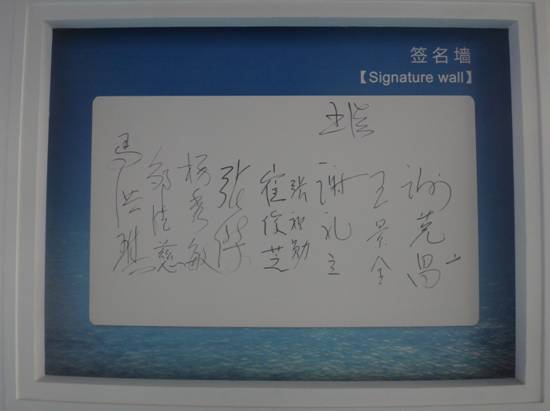 签名墙
【Signature wall】
王浩
谢克昌
王景全
谢礼立
张祖勋
崔俊芝
张
杨秀敏
邹德慈
马洪琪